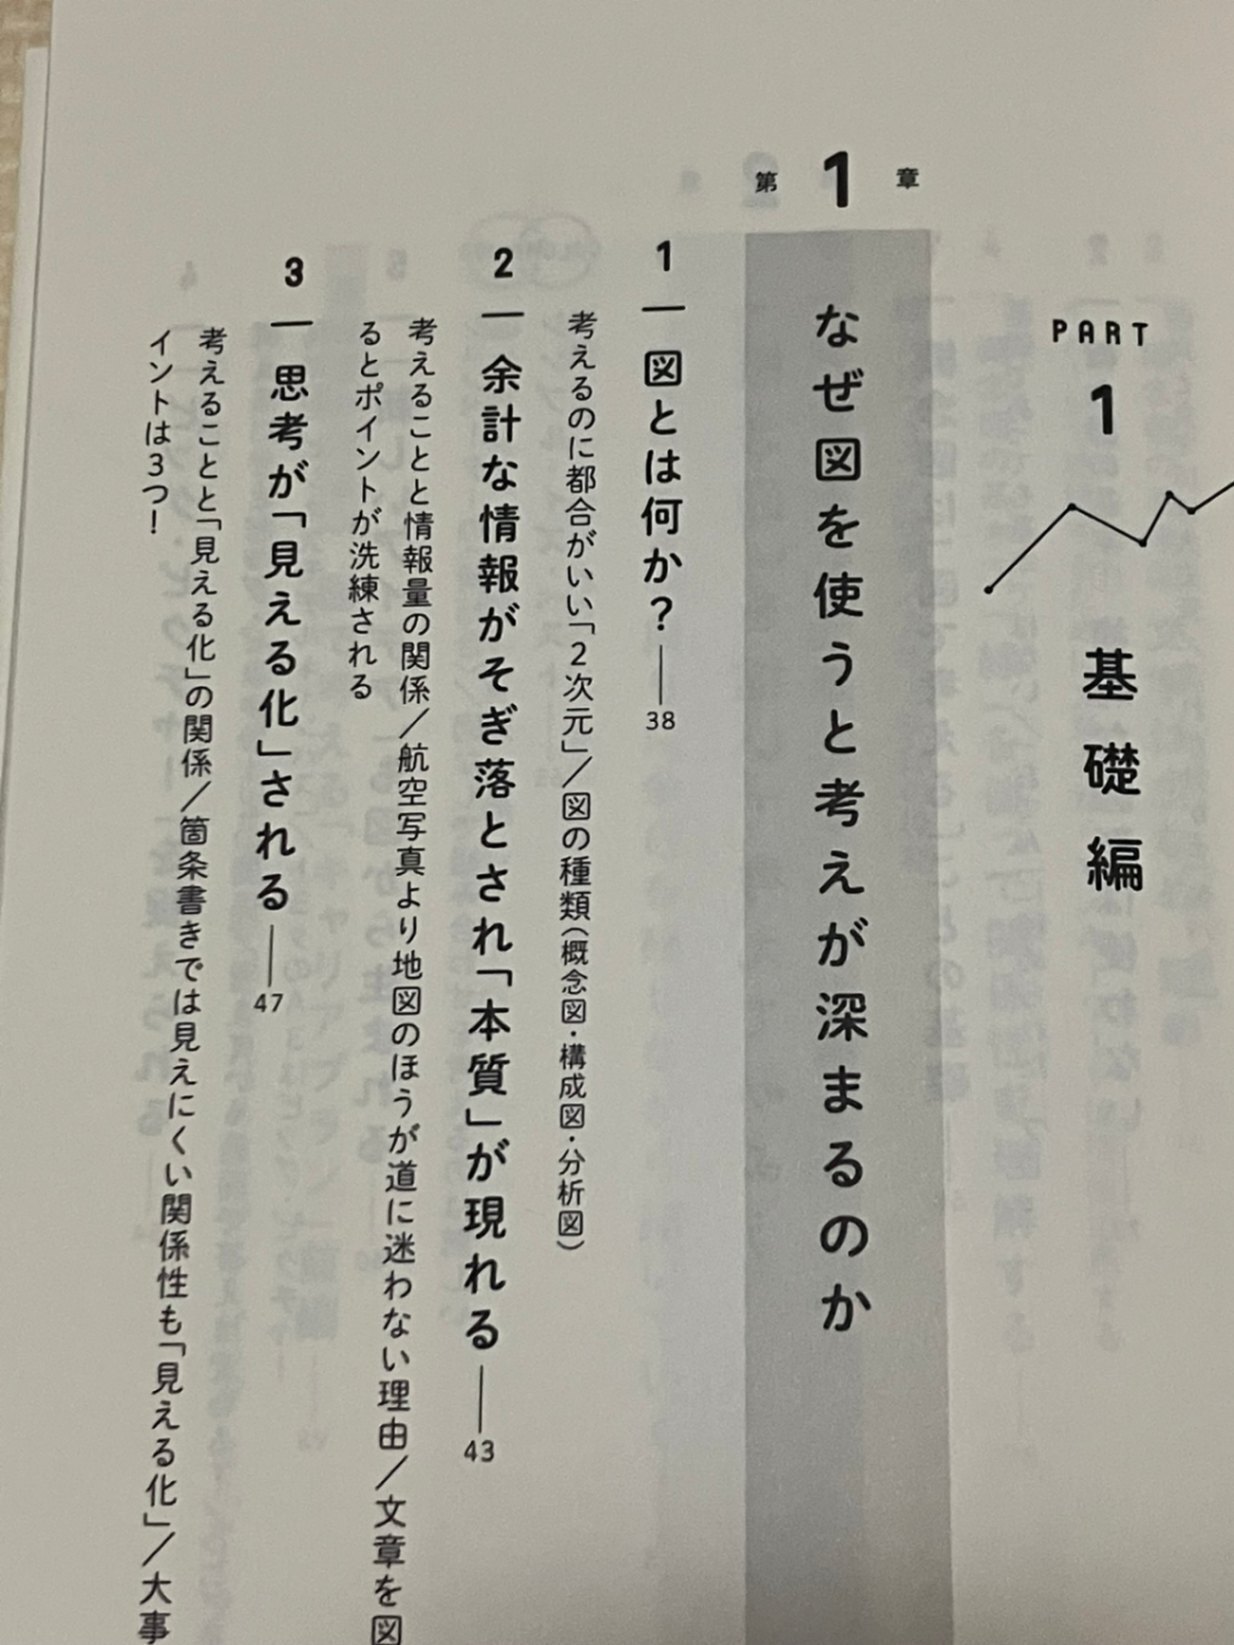 PART 1 基礎編
第1章
なぜ図を使うと考えが深まるのか
1 ― 図とは何か? ― 38
考えるのに都合がいい「2次元」/図の種類(概念図・構成図・分析図)
2 ― 余計な情報がそぎ落とされ「本質」が現れる ― 43
考えることと情報量の関係/航空写真より地図のほうが道に迷わない理由/文章を図
るとポイントが洗練される
3 ― 思考が「見える化」される ― 47
考えることと「見える化」の関係/箇条書きでは見えにくい関係性も「見える化」/大事
イントは3つ!